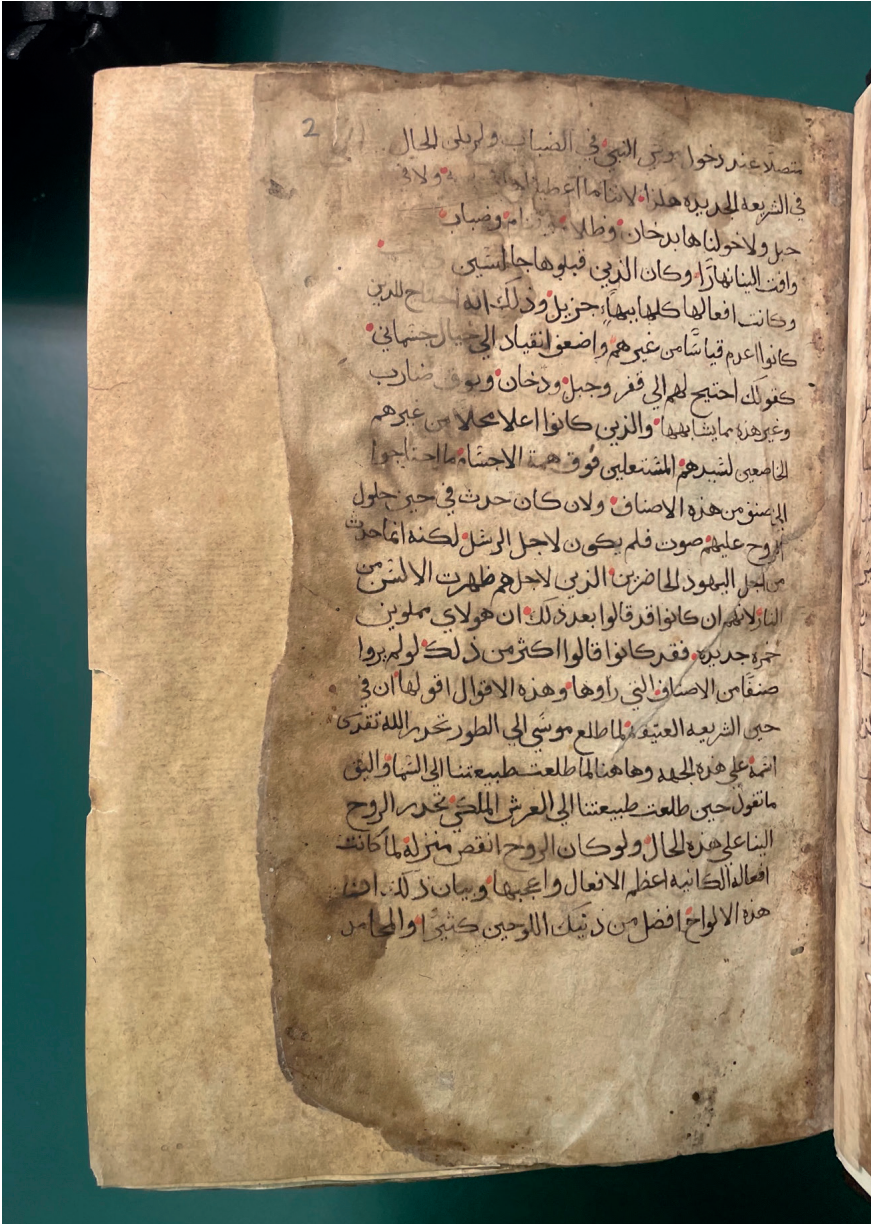 2
متصلًا عند دخول النبي في الضباب ولم يكن الحال
في الشريعه الجديده هكذا لاننا ما اعطينا ولا في
جبل ولا خولناها بدخان وظلام وضباب
وافت الينا نهارًا وكان الذين قبلوها جالسين
وكانت افعالها كلها ببهاءٍ جزيل وذلك انه احتاج للذين
كانوا اعدم قياسًا من غيرهم واضعف انقياد الي خيال جسماني
كقولك احتيج لهم الي قفر وجبل ودخان وبوق ضارب
وغير هذه مما يشابهها والذين كانوا اعلا محلا من غيرهم
الخاضعين لسيدهم المستعلين فوق همة الاجسام ما احتاجوا
الي صنف من هذه الاصناف ولان كان حدث في حين حلول
الروح عليهم صوت فلم يكون لاجل الرسل لكنه انما حدث
من اجل اليهود الحاضرين الذين لاجلهم ظهرت الالسن من
النار لانهم ان كانوا قد قالوا بعد ذلك ان هولاي مملوين
خمره جديده فقد كانوا قالوا اكثر من ذلك لو لم يروا
صنفًا من الاصناف التي راوها وهذه الاقوال اقولها ان في
حين الشريعه العتيقه لما طلع موسي الي الطور تحدر الله تقدس
اسمه علي هذه الجهه وهاهنا لما طلعت طبيعتنا الي السما واليق
ما نقول حين طلعت طبيعتنا الي العرش الملكي تحدر الروح
الينا علي هذه الحال ولو كان الروح انقص منزله لما كانت
افعاله الكاينه اعظم الافعال واعجبها وبيان ذلك ان
هذه الالواح افضل من ذنيك اللوحين كثيرًا والمحامد